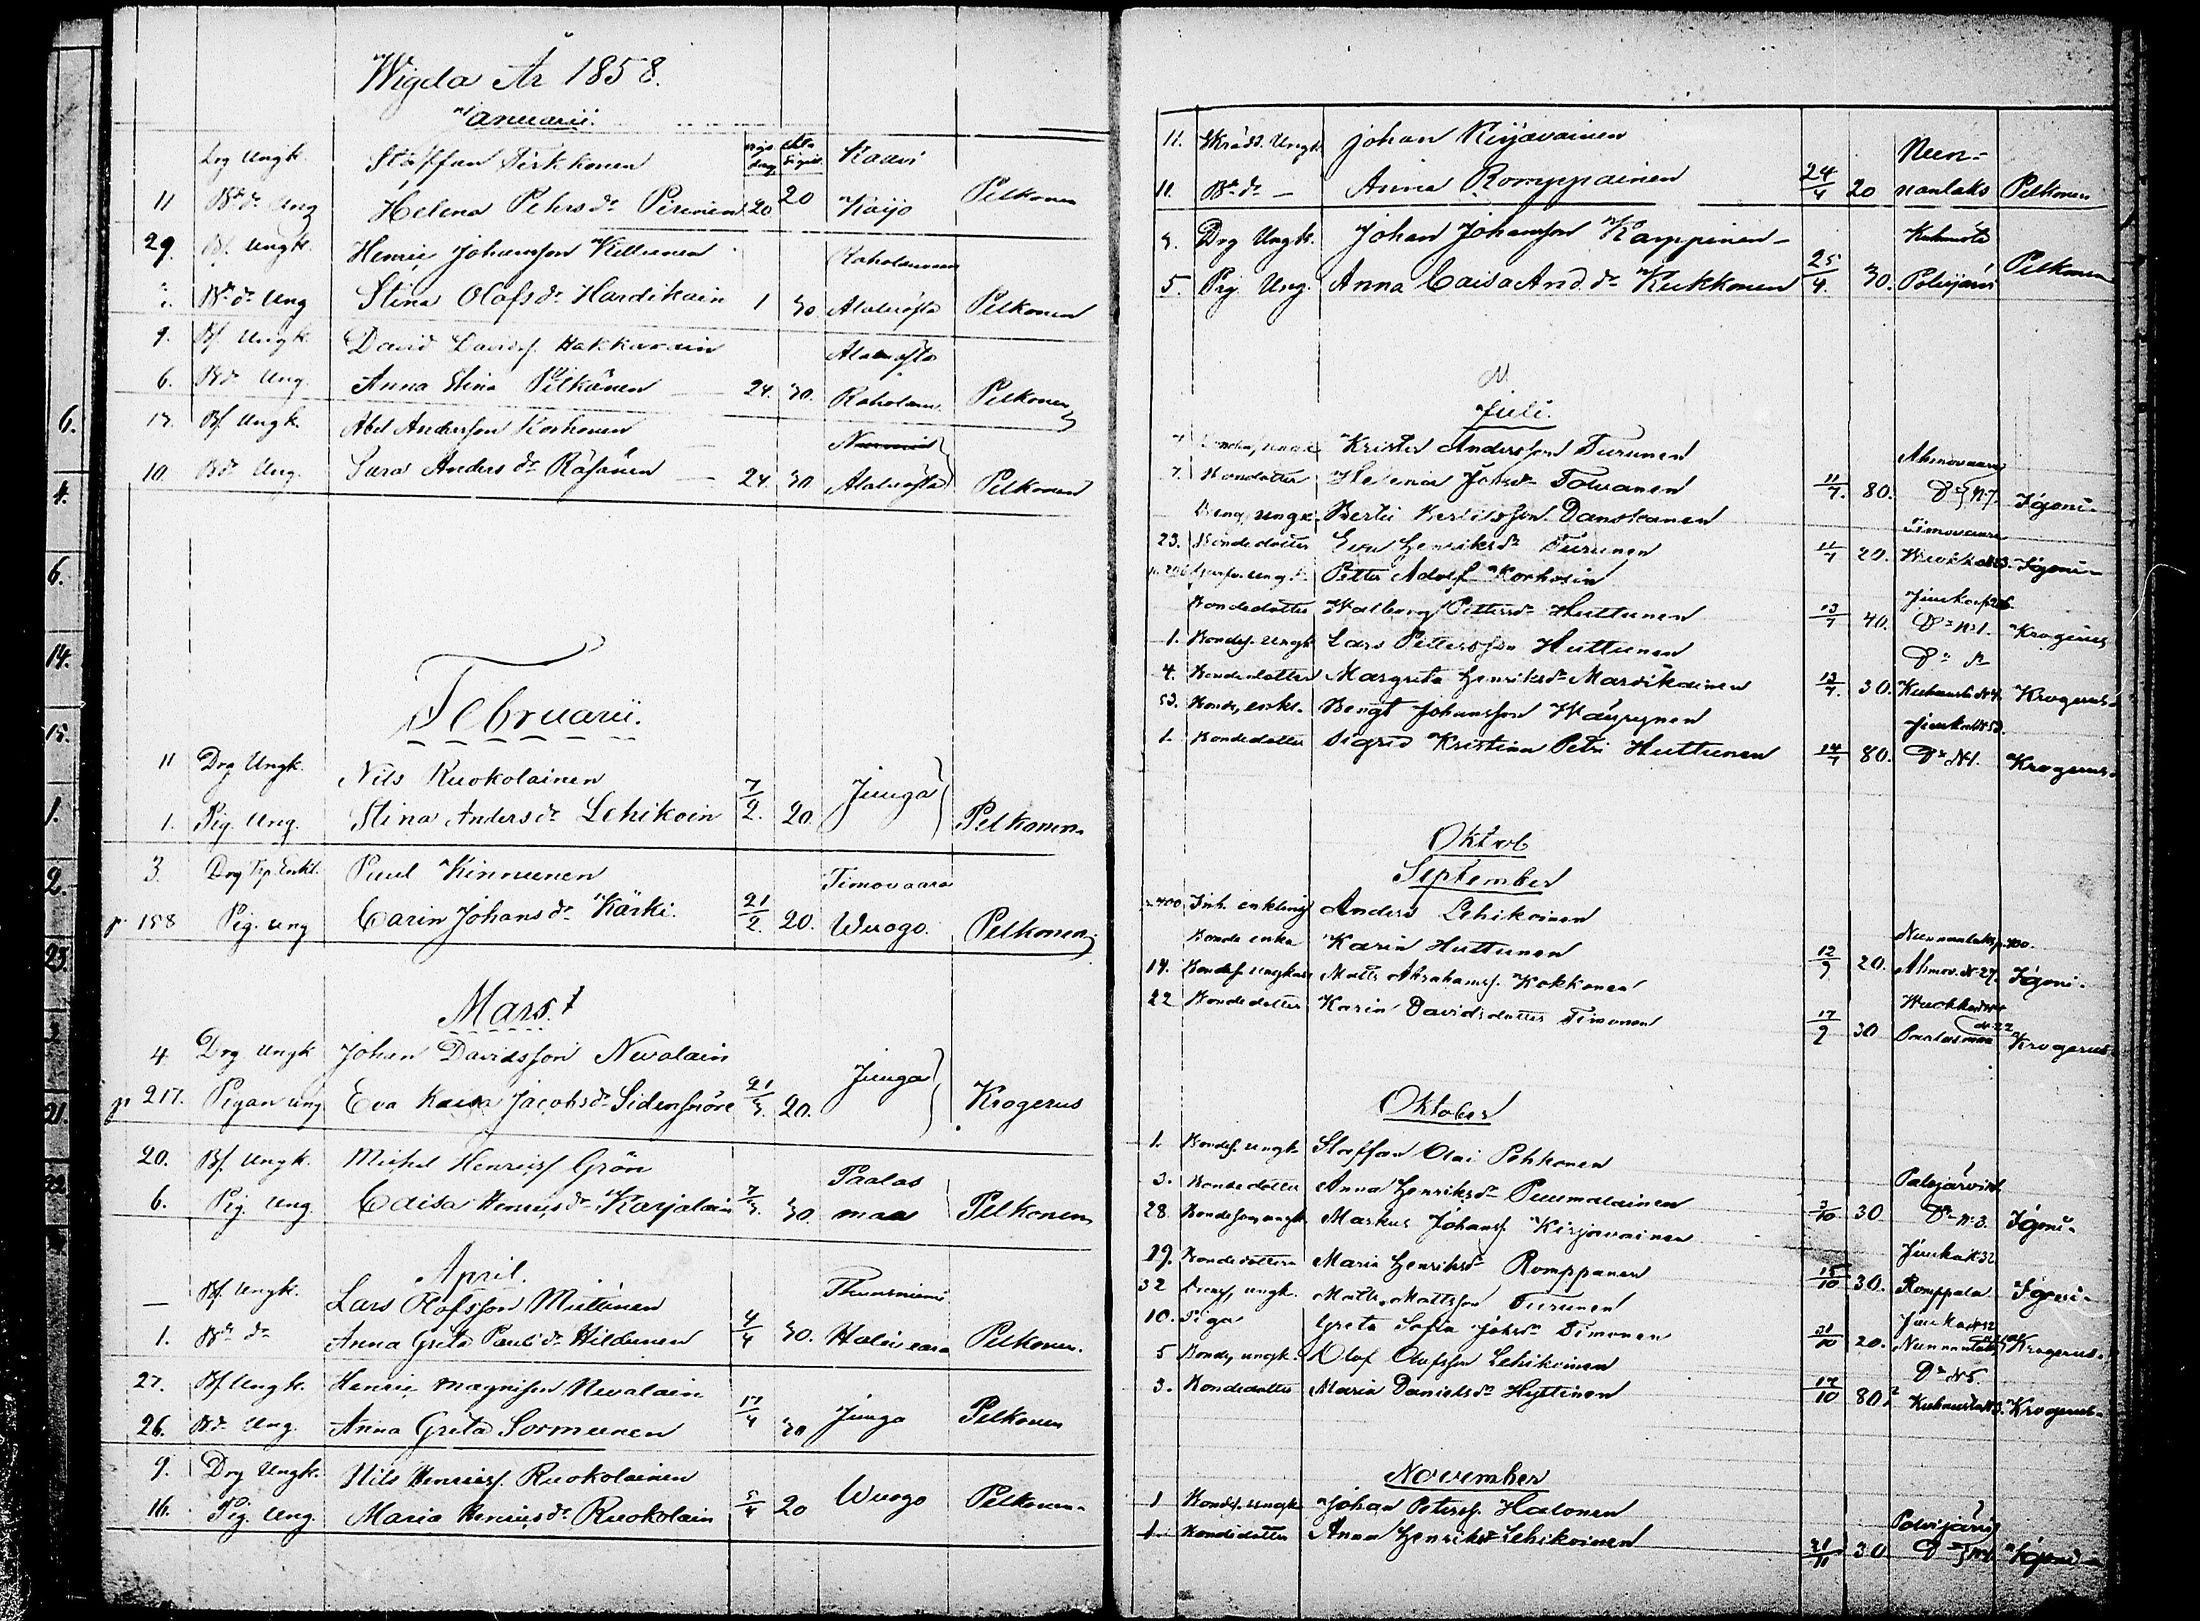 Wigda År 1858.
Januarii.
Drg Ungk. Staffan Tirkkonen Kaavi
11 Bd dr Ung Helena Pehrsdr Pirinen 20 20 Kajo Pelkonen
29. Bf. Ungk. Henric Johansson Killunen Raholanvaara
Bd dr Ung Stina Olofsdr Hardikain 1 30 Alaluosta Pelkonen
9. Bf Ungk. David Davidsf. Hakkarain Alaluosta
6. Bdr Ung. Anna Stina Pitkänen 24. 30. Raholan. Pelkonen
17. Bf. Ungk. Abel Andersson Korhonen
10. Bdr Ung. Sara Andersdr Räsänen 24. 30 Alaluosta Pelkonen
Februarii.
11 Drg Ungk. Nils Ruokolainen Juuga
1. Pig. Ung. Stina Andersdr Lehikoin 7/2. 20. Pelkonen
3. Drg Enkl. Paul Kinnunen Timovaara
p 158 Pig. ung Carin Johansdr Kärki. 21/2. 20. Wuogo. Pelkonen
Mars.
4 Drg Ungk Johan Davidsson Nevalain Juuga
p 217. Pigan ung Eva Kaisa Jacobsdr Sidensnöre 21/3. 20. Krogerus
20. Bf. Ungk. Michel Henricsf Grön Paalas
6. Pig. Ung Caisa Henricsdr Karjalain 7/3. 30. maa Pelkonen
April.
— Bf. Ungk. Lars Olofsson Miettinen Thuusniemi
1. Bdr dr Anna Greta Paulsdr Hildunen 4/4 30. Halivaara Pelkonen.
27. Bf Ungk. Henric Magnisson Nevalain Juuga
26. Bdr Ung. Anna Greta Sormunen 17/4 30 Pelkonen
9. Drg Ungk. Nils Henricsf. Ruokolainen Wuogo
16. Pig. Ung. Maria Henricsdr Ruokolain 5/4 20 Pelkonen
11. Skrädd. Ungk. Johan Kirjavainen Nun-
11. Bdr dr — Anna Romppainen 24/4 20 nanlaks Pelkonen
Drg Ungk. Johan Johansson Kamppinen - Kuhnusta
5. Pig. Ung. Anna Caisa And.dr Kukkonen 25/4. 30. Polvijärvi Pelkonen
Juli.
Krister Andersson Turunen Ahmovaara
7. Bondotter Helena Johsdr Tolvanen 11/7. 80. Do N 7. Igoni-
Bertil Bertilsson Danskanen Timovaara
23. Bondedotter Eva Henriksdr Turunen 11/7 20. Igoni-
Petter Adolf Korhosin Juuka p 206
Bondedotter Walborg Pettersdr Huttunen 13/7 40. Do N 1. Krogerus
1. Bondes. ungk Lars Pettersson Huttunen Do do
4. Bondedotter Margreta Henriksdr Mardikainen 13/7. 30. Kuhnusta N 4. Krogerus
53. Bonde, enkl. Bengt Johansson Wäyrynen Juuka N 53.
1. Bondedotter Sigrid Kristina Petri Huttunen 14/7 80. Do N 1. Krogerus
Oktob
September
p 400 Inh. enkling Anders Lehikoinen Nunnanlaks p. 400.
Bonde enka Karin Huttunen 12/9 20. Ahmov. N 27. Igoni-
14. Bondes. ungkarl Matts Abrahamsf. Kokkonen
22 Bondedotter Karin Davidsdotter Timonen 17/9 30 Paalasmaa N 22 Krogerus
Oktober
1. Bondes. ungk Staffan Olai Pehkonen Polvijärvi N 1
3. Bondedotter Anna Henriksdr Puumalainen 3/10 30 Do N 3. Igoni-
28. Bondeson ungk Markus Johansf. Kirjavainen Juuka N 32
19. Bondedottern Maria Henriksdr Romppanen 15/10 30. Romppala Igoni-
32 ungk. Matts Mattsson Turunen Juuka N 32
10. Piga Greta Sofia Johsdr Timonen 31/10 20. Nunnanlaks Krogerus
5 Bonde, ungk. Olof Olofsson Lehikoinen Do N 5
3. Bondedotter Maria Danielsdr Hyttinen 17/10 80. Kuhnusta N 3. Krogerus
November
1 Bondes. ungk Johan Petersf. Halonen Polvijärvi
1. Bondedotter Anna Henriksdr Lehikoinen 21/11 30. Do N 1. Igoni-